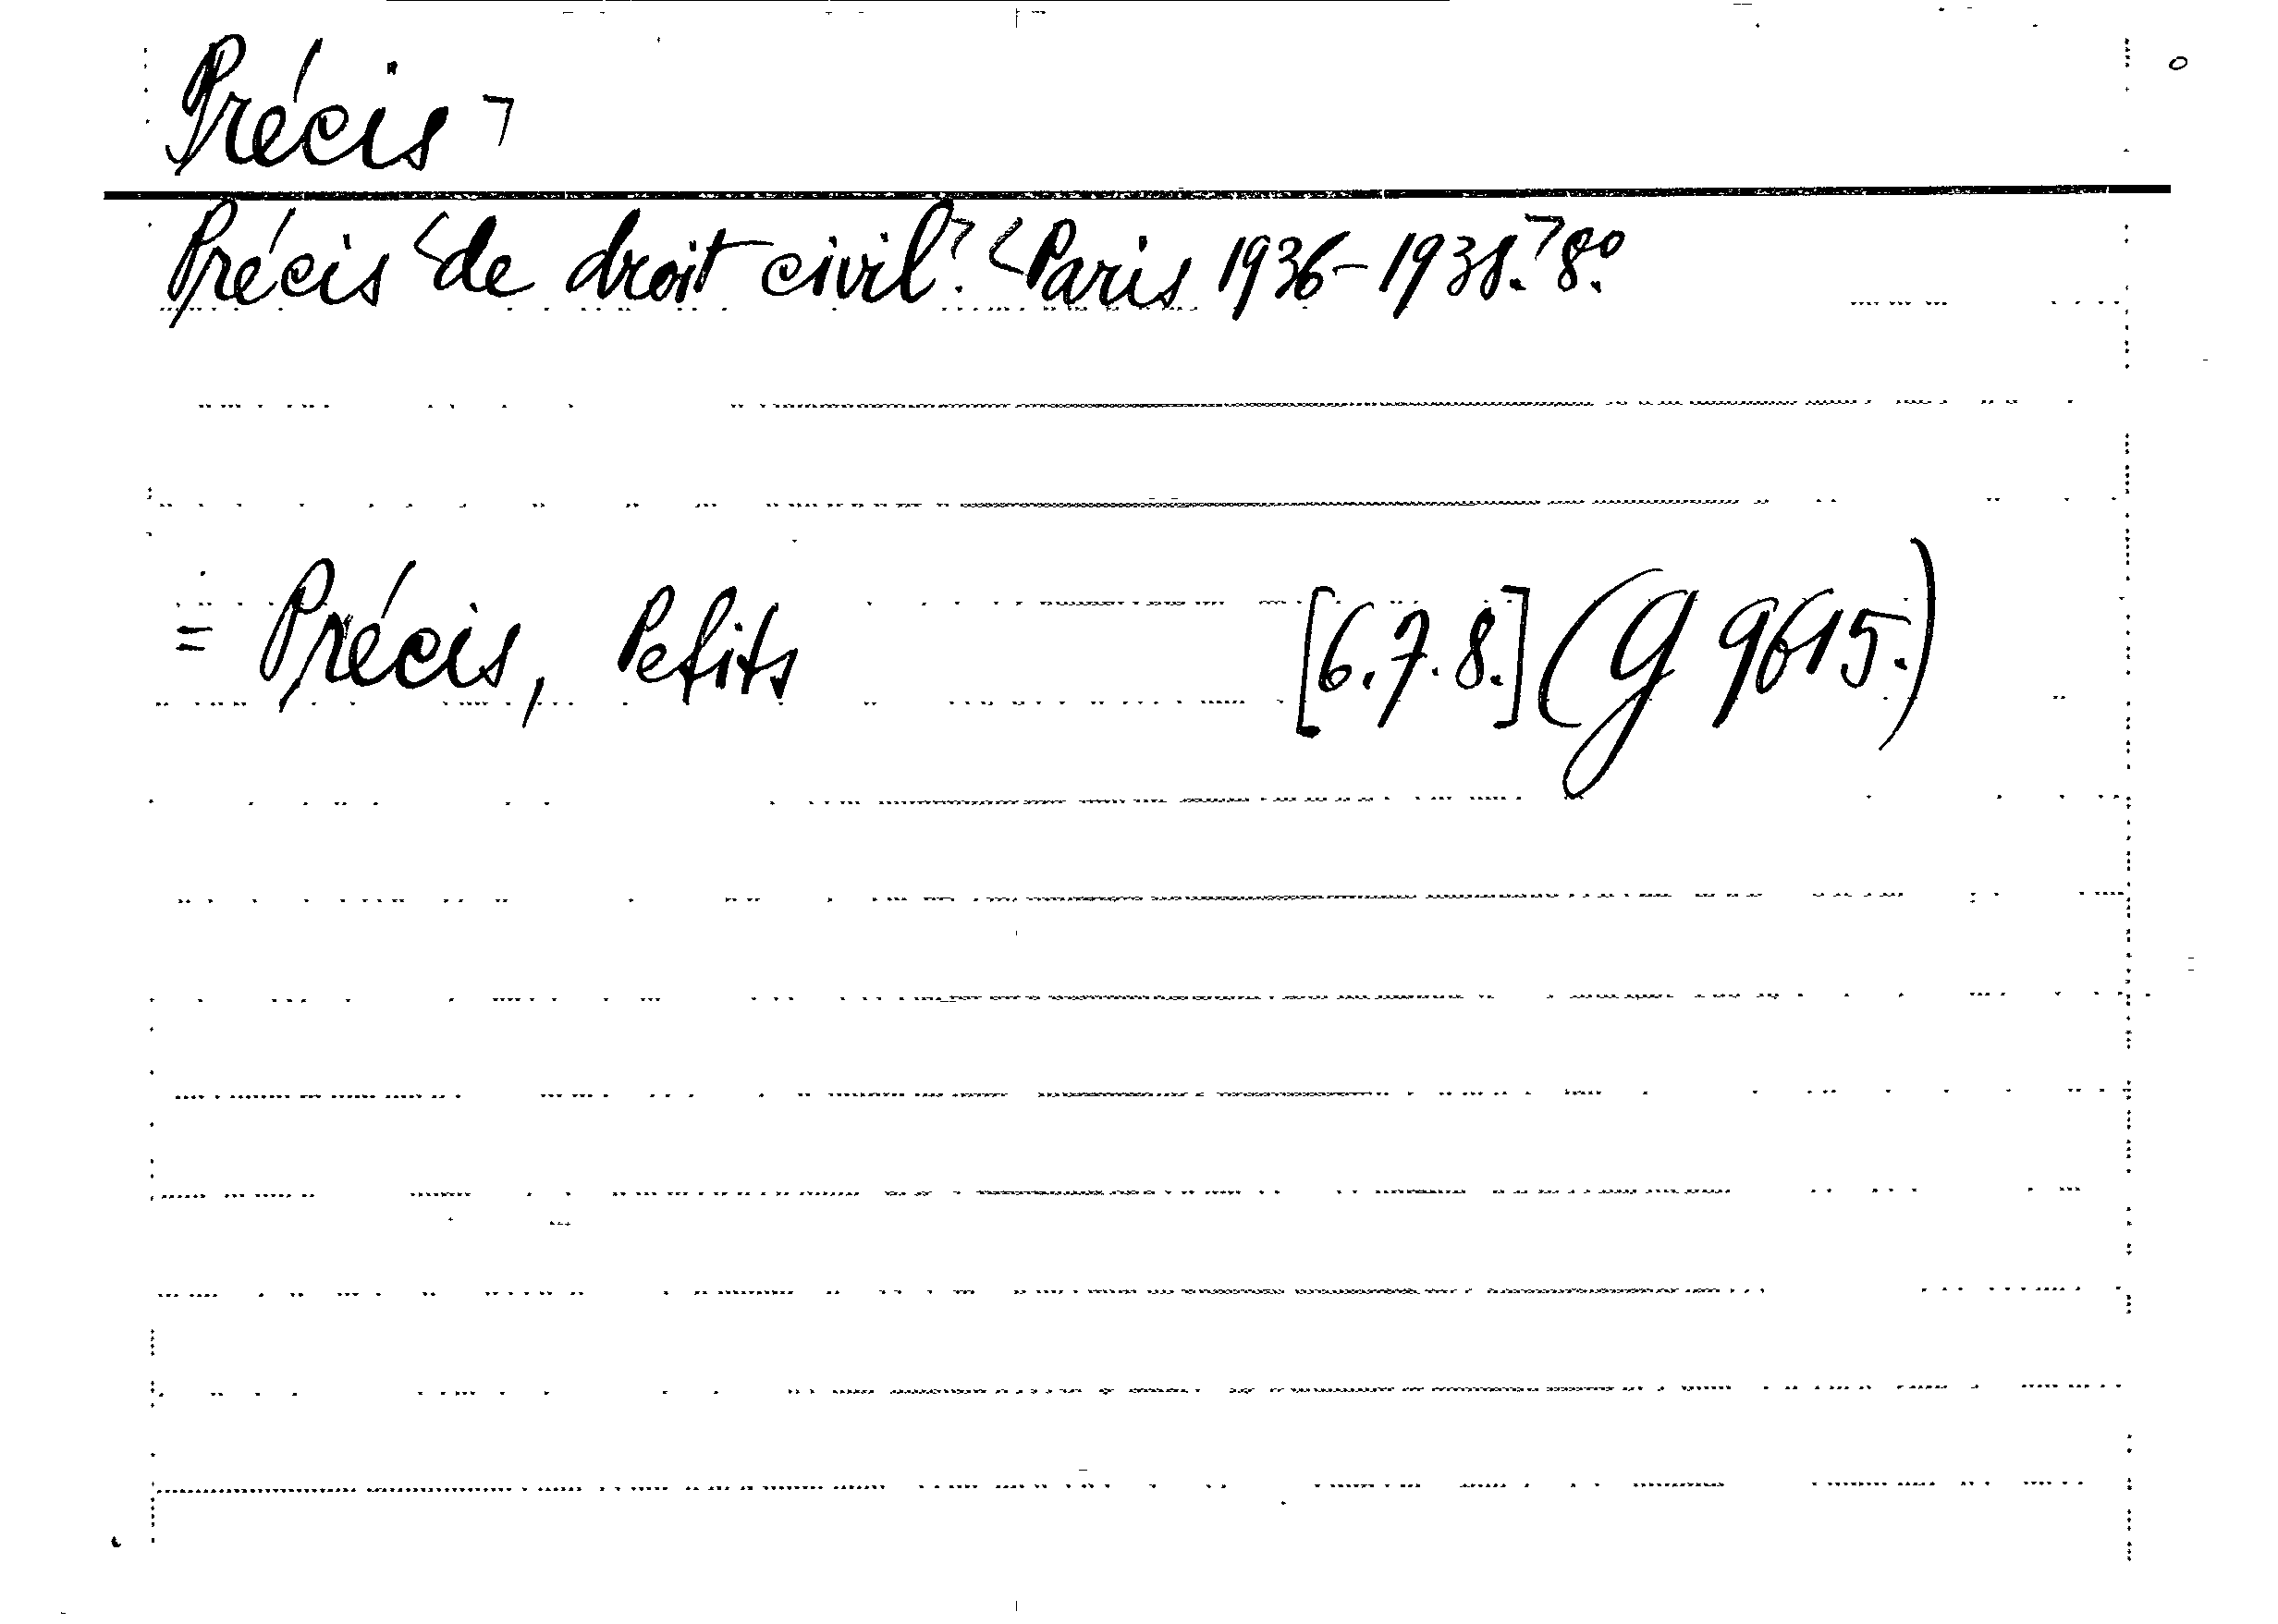 Précis ┐
Précis <de droit civil.> <Paris 1936-1938.> 8º.
= Précis, Petits [6.7.8.] (G 9615.)